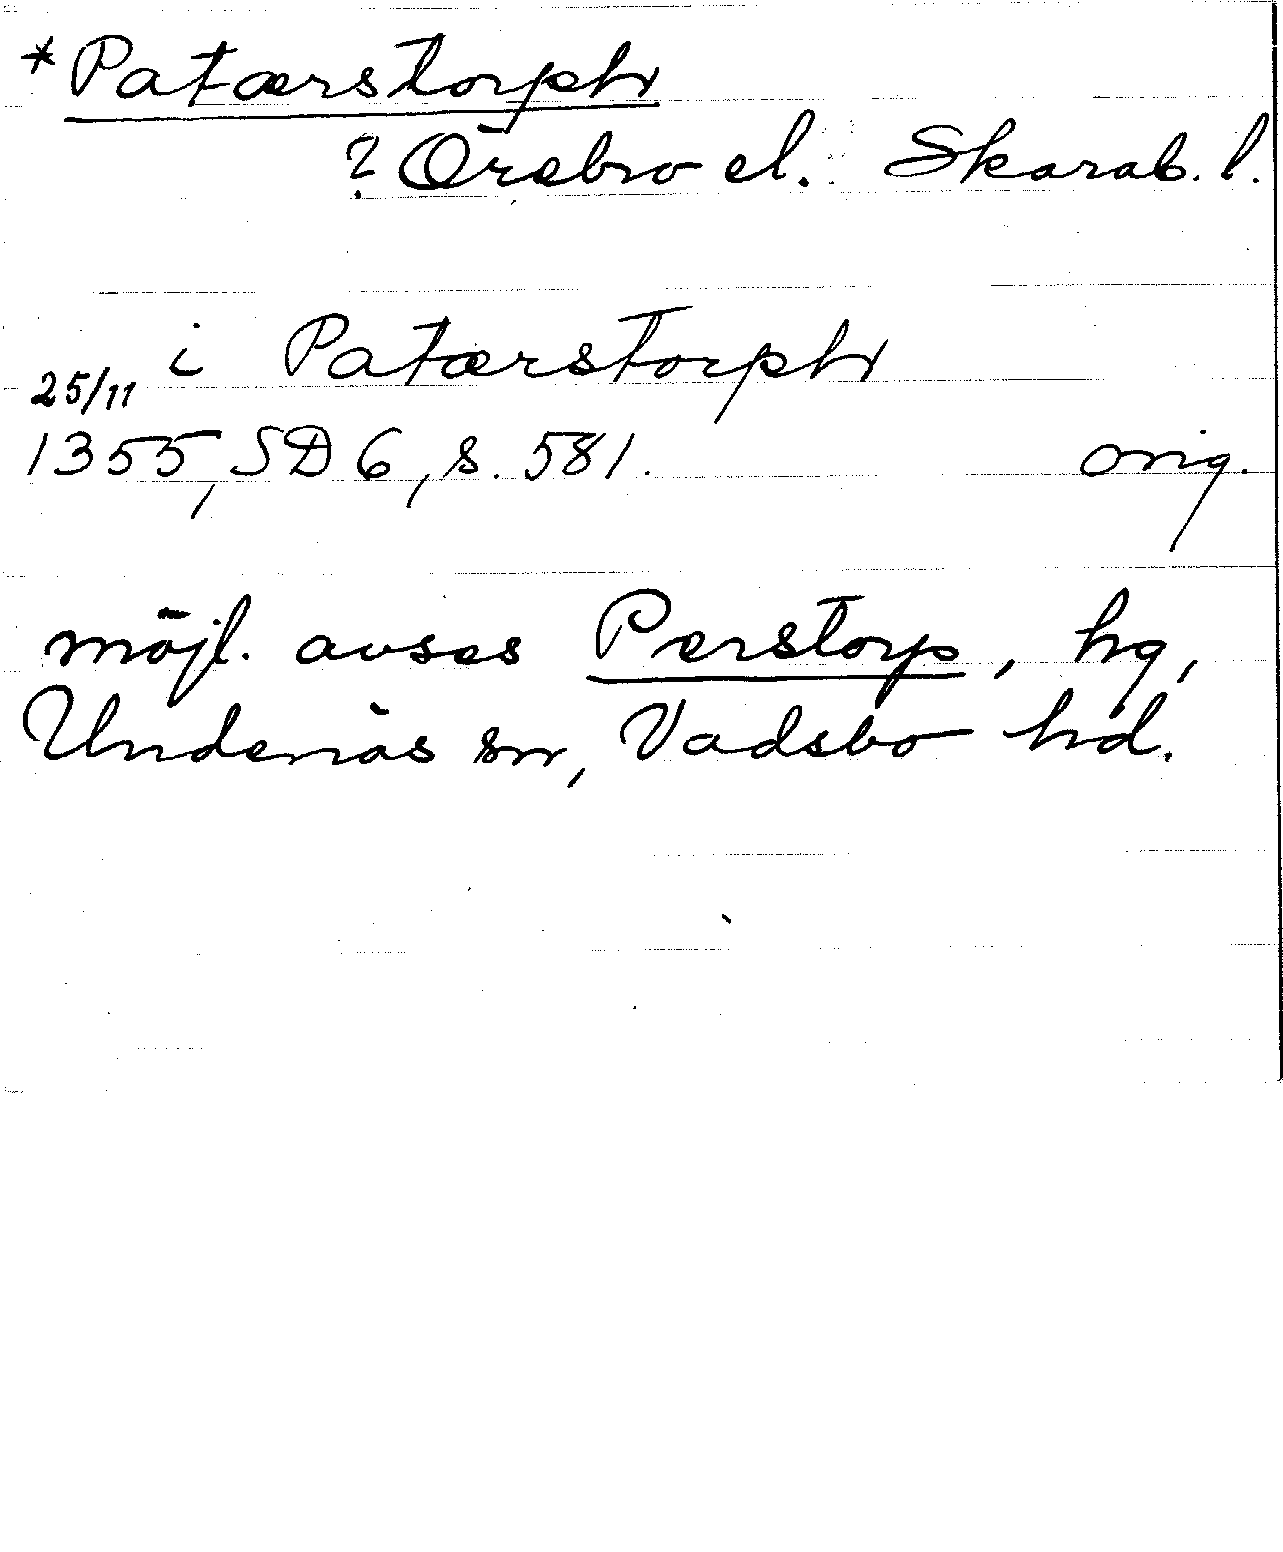 *Patærstorph
? Örebro el. Skarab. l.
i Patærstorph
25/11
1355, SD 6, s. 581. orig.
möjl. avses Perstorp, hg,
Undenäs sn, Vadsbo hd.